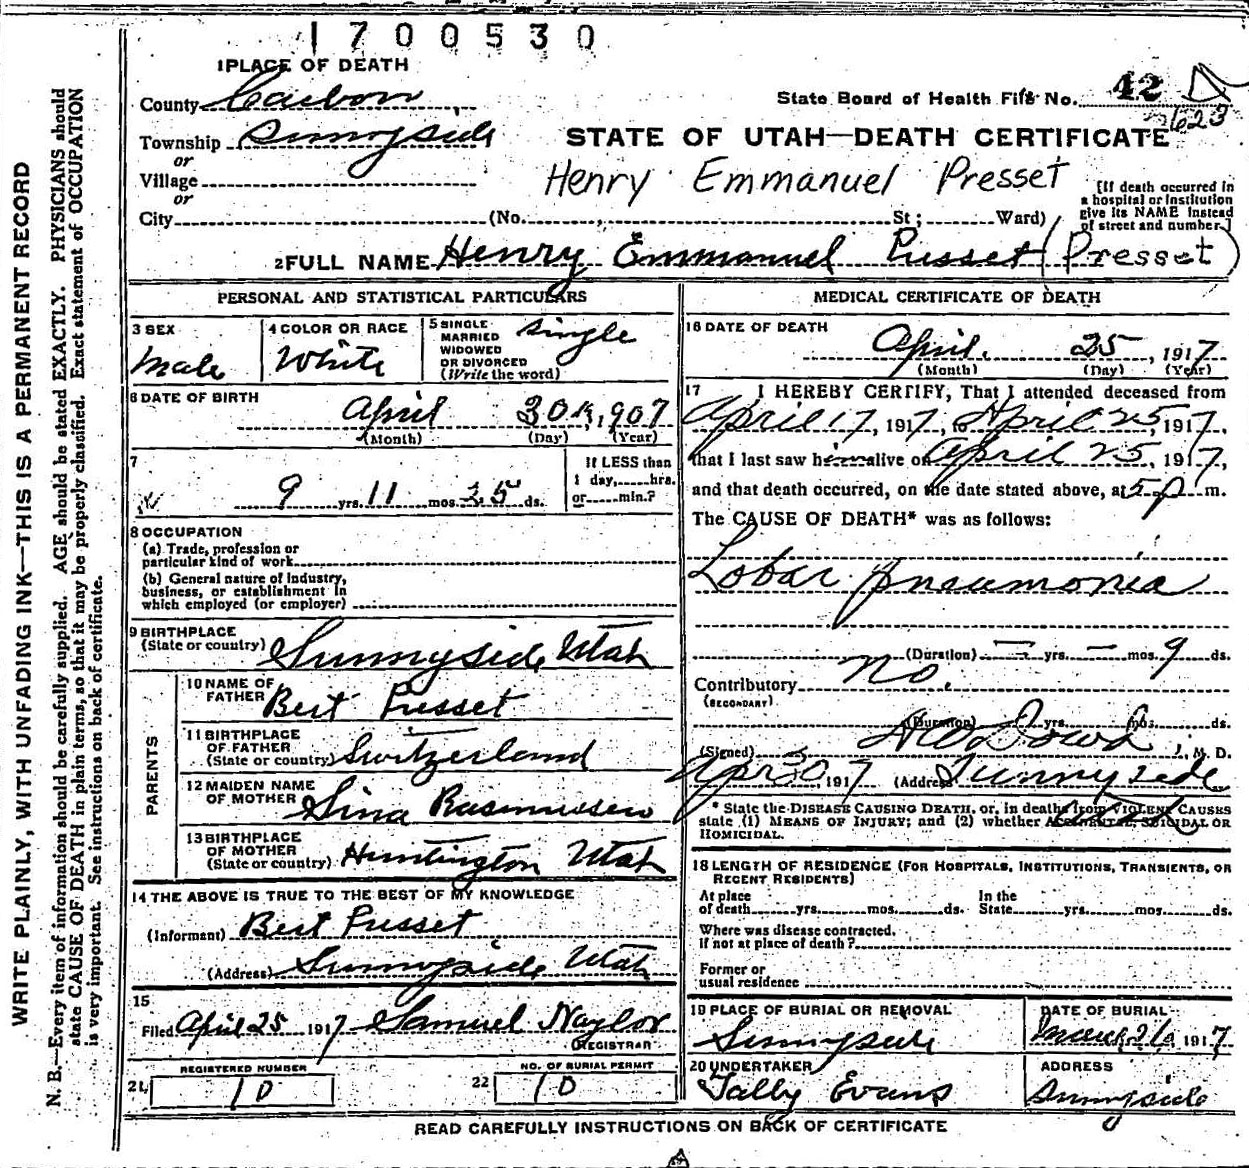 1700530
1 PLACE OF DEATH
County Carbon
State Board of Health File No. 42
623
Township Sunnyside
STATE OF UTAH—DEATH CERTIFICATE
or
Village
Henry Emmanuel Presset
or
City (No. , St ; Ward)
[If death occurred in
a hospital or institution
give its NAME instead
of street and number.]
2 FULL NAME Henry Emmanuel Pusset (Presset)
PERSONAL AND STATISTICAL PARTICULARS
3 SEX
Male
4 COLOR OR RACE
White
5 SINGLE
MARRIED
WIDOWED
OR DIVORCED
(Write the word)
single
6 DATE OF BIRTH
April 30th, 1907
(Month) (Day) (Year)
7
9 yrs. 11 mos. 25 ds.
If LESS than
1 day, hrs.
or min.?
8 OCCUPATION
(a) Trade, profession or
particular kind of work
(b) General nature of industry,
business, or establishment in
which employed (or employer)
9 BIRTHPLACE
(State or country) Sunnyside Utah
PARENTS
10 NAME OF
FATHER Bert Pusset
11 BIRTHPLACE
OF FATHER
(State or country) Switzerland
12 MAIDEN NAME
OF MOTHER Sina Rasmussen
13 BIRTHPLACE
OF MOTHER
(State or country) Huntington Utah
14 THE ABOVE IS TRUE TO THE BEST OF MY KNOWLEDGE
(Informant) Bert Pusset
(Address) Sunnyside Utah
15
Filed April 25 1917 Samuel Naylor
REGISTRAR
REGISTERED NUMBER
21, 10
NO. OF BURIAL PERMIT
22 10
MEDICAL CERTIFICATE OF DEATH
16 DATE OF DEATH
April 25, 1917
(Month) (Day) (Year)
17 I HEREBY CERTIFY, That I attended deceased from
April 17, 1917, to April 25, 1917,
that I last saw him alive on April 25, 1917,
and that death occurred, on the date stated above, at 5 p m.
The CAUSE OF DEATH* was as follows:
Lobar pneumonia
(Duration) — yrs. — mos. 9 ds.
Contributory no.
(SECONDARY)
(Duration) yrs. mos. ds.
(Signed) Dowd, M. D.
Apr 30, 1917 (Address) Sunnyside
Utah
* State the DISEASE CAUSING DEATH, or, in deaths from VIOLENT CAUSES
state (1) MEANS OF INJURY; and (2) whether ACCIDENTAL, SUICIDAL OR
HOMICIDAL.
18 LENGTH OF RESIDENCE (FOR HOSPITALS, INSTITUTIONS, TRANSIENTS, OR
RECENT RESIDENTS)
At place
of death yrs. mos. ds.
In the
State yrs. mos. ds.
Where was disease contracted.
if not at place of death?
Former or
usual residence
19 PLACE OF BURIAL OR REMOVAL
Sunnyside
DATE OF BURIAL
March 26 1917
20 UNDERTAKER
Tally Evans
ADDRESS
Sunnyside
READ CAREFULLY INSTRUCTIONS ON BACK OF CERTIFICATE
WRITE PLAINLY, WITH UNFADING INK—THIS IS A PERMANENT RECORD
N. B.—Every item of information should be carefully supplied. AGE should be stated EXACTLY. PHYSICIANS should
state CAUSE OF DEATH in plain terms, so that it may be properly classified. Exact statement of OCCUPATION
is very important. See instructions on back of certificate.